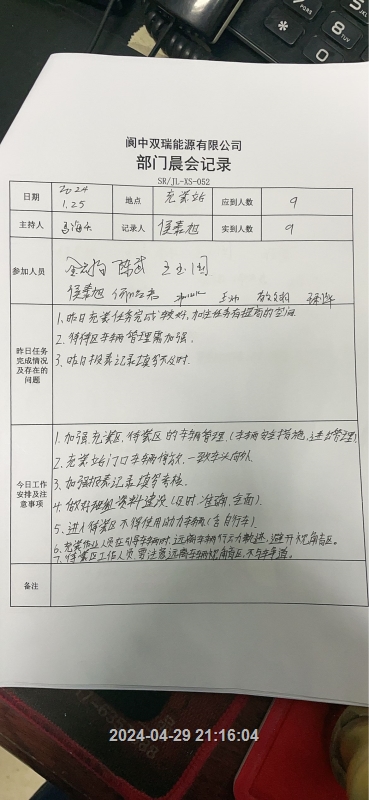 阆中双瑞能源有限公司
部门晨会记录
SR/JL-XS-052
日期 2024 1.25 地点 充装站 应到人数 9
主持人 记录人 侯素旭 实到人数 9
参加人员
侯素旭
昨日任务完成情况及存在的问题
1、昨日充装任务完成较好,加注任务有提高的空间
2、待装区车辆管理需加强.
3、昨日报表记录填写不及时.
今日工作安排及注意事项
1、加强充装区、待装区的车辆管理(车辆安全措施、进出管理)
2、充装站门口车辆停放,一致车头向外
3、加强报表记录填写考核.
4、做好班组资料建设(及时、准确、全面).
5、进入待装区不得使用动力车辆(含自行车).
6、充装作业人员在引导车辆时,远离车辆行驶轨迹,避开视角盲区。
7、待装区工作人员,要注意远离车辆视角盲区,不与车争道。
备注
2024-04-29 21:16:04